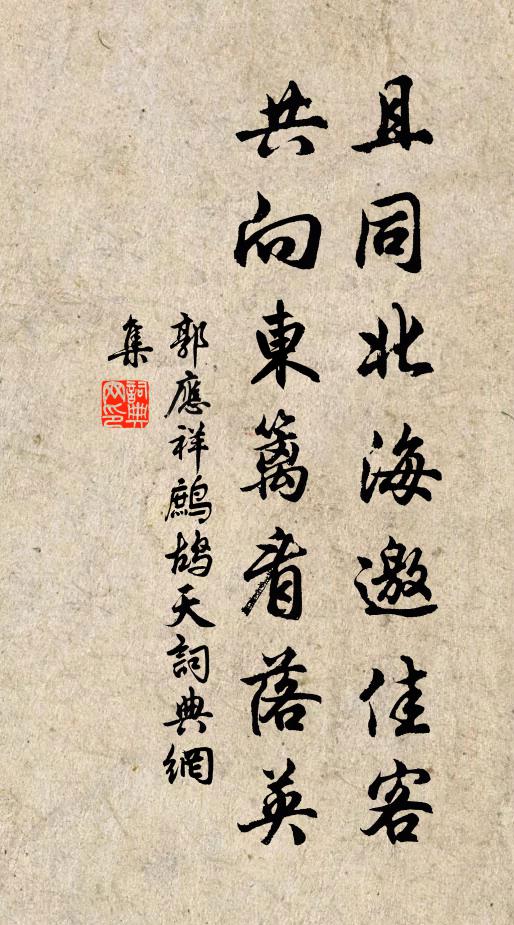 且同北海邀佳客
共向東籬看落英
郭應祥鷓鴣天詞典網
集
詞典网印